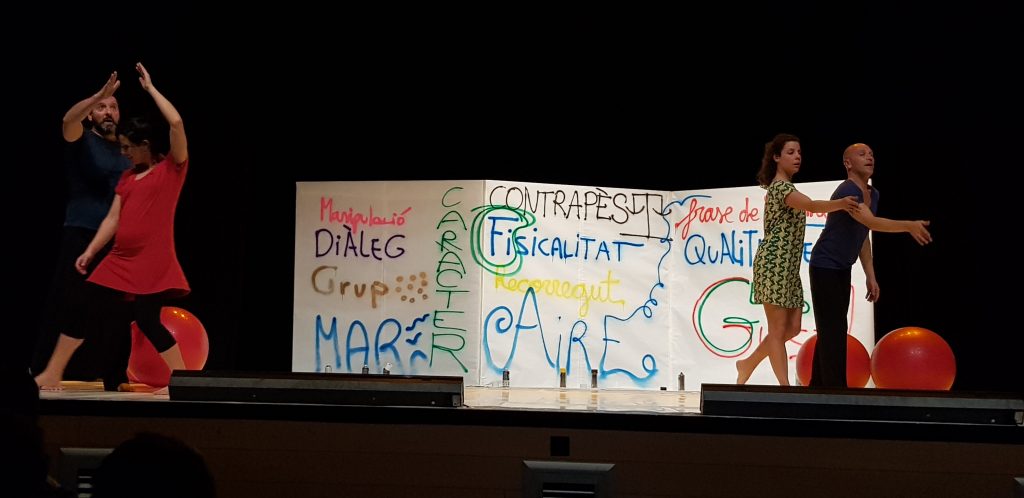 Manipulació
DIÀLEG
Grup
MAR
CARÀCTER
CONTRAPÈS
FISICALITAT
Recorregut
AIRE
frase de
QUALIT